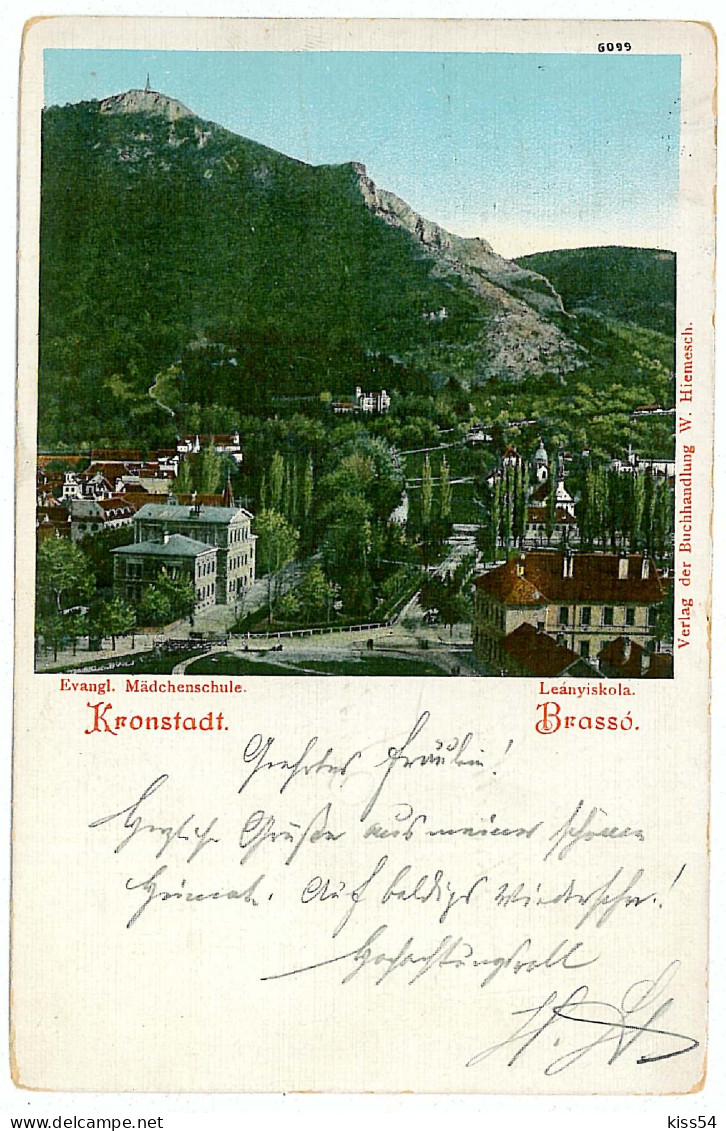 6099
Verlag der Buchhandlung W. Hiemesch.
Evangl. Mädchenschule.
Leányiskola.
Kronstadt.
Brassó.
Geehrtes Fräulein!
Herzliche Grüße aus meiner schönen
Heimat. Auf baldiges Wiedersehn!
Hochachtungsvoll
kiss54